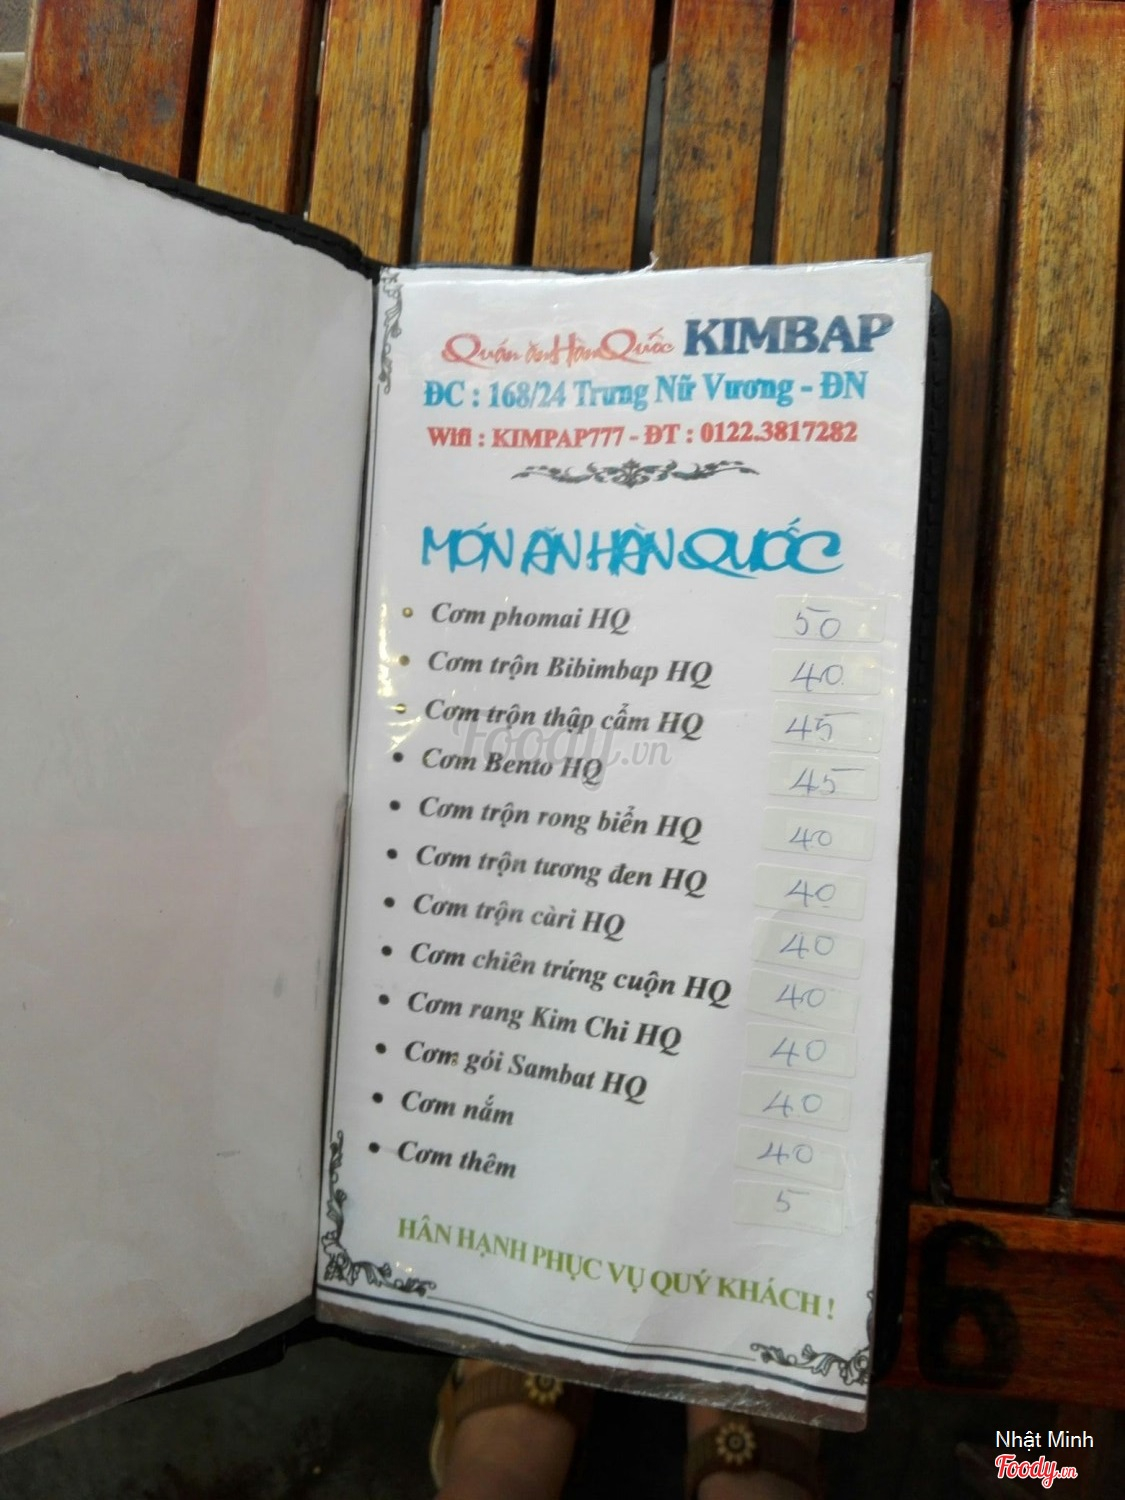 Quán ăn Hàn Quốc KIMBAP
ĐC : 168/24 Trưng Nữ Vương - ĐN
Wifi : KIMPAP777 - ĐT : 0122.3817282
MÓN ĂN HÀN QUỐC
• Cơm phomai HQ 50
• Cơm trộn Bibimbap HQ 40
• Cơm trộn thập cẩm HQ 45
• Cơm Bento HQ 45
• Cơm trộn rong biển HQ 40
• Cơm trộn tương đen HQ 40
• Cơm trộn càri HQ 40
• Cơm chiên trứng cuộn HQ 40
• Cơm rang Kim Chi HQ 40
• Cơm gói Sambat HQ 40
• Cơm nắm 40
• Cơm thêm 5
HÂN HẠNH PHỤC VỤ QUÝ KHÁCH !
Foody.vn
6
Nhật Minh
Foody.vn